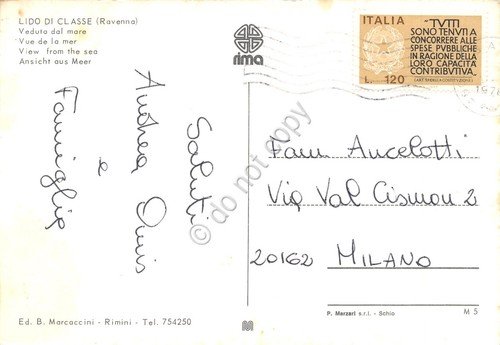 LIDO DI CLASSE (Ravenna)
Veduta dal mare
Vue de la mer
View from the sea
Ansicht aus Meer
rima
ITALIA
"TUTTI
SONO TENUTI A
CONCORRERE ALLE
SPESE PUBBLICHE
IN RAGIONE DELLA
LORO CAPACITÀ
CONTRIBUTIVA„
L. 120
Saluti
Andrea
e
Famiglia
© do not copy
Fam. Ancelotti
Via Val Cismon 2
20162 MILANO
Ed. B. Marcaccini - Rimini - Tel. 754250
P. Marzari s.r.l. - Schio
M 5